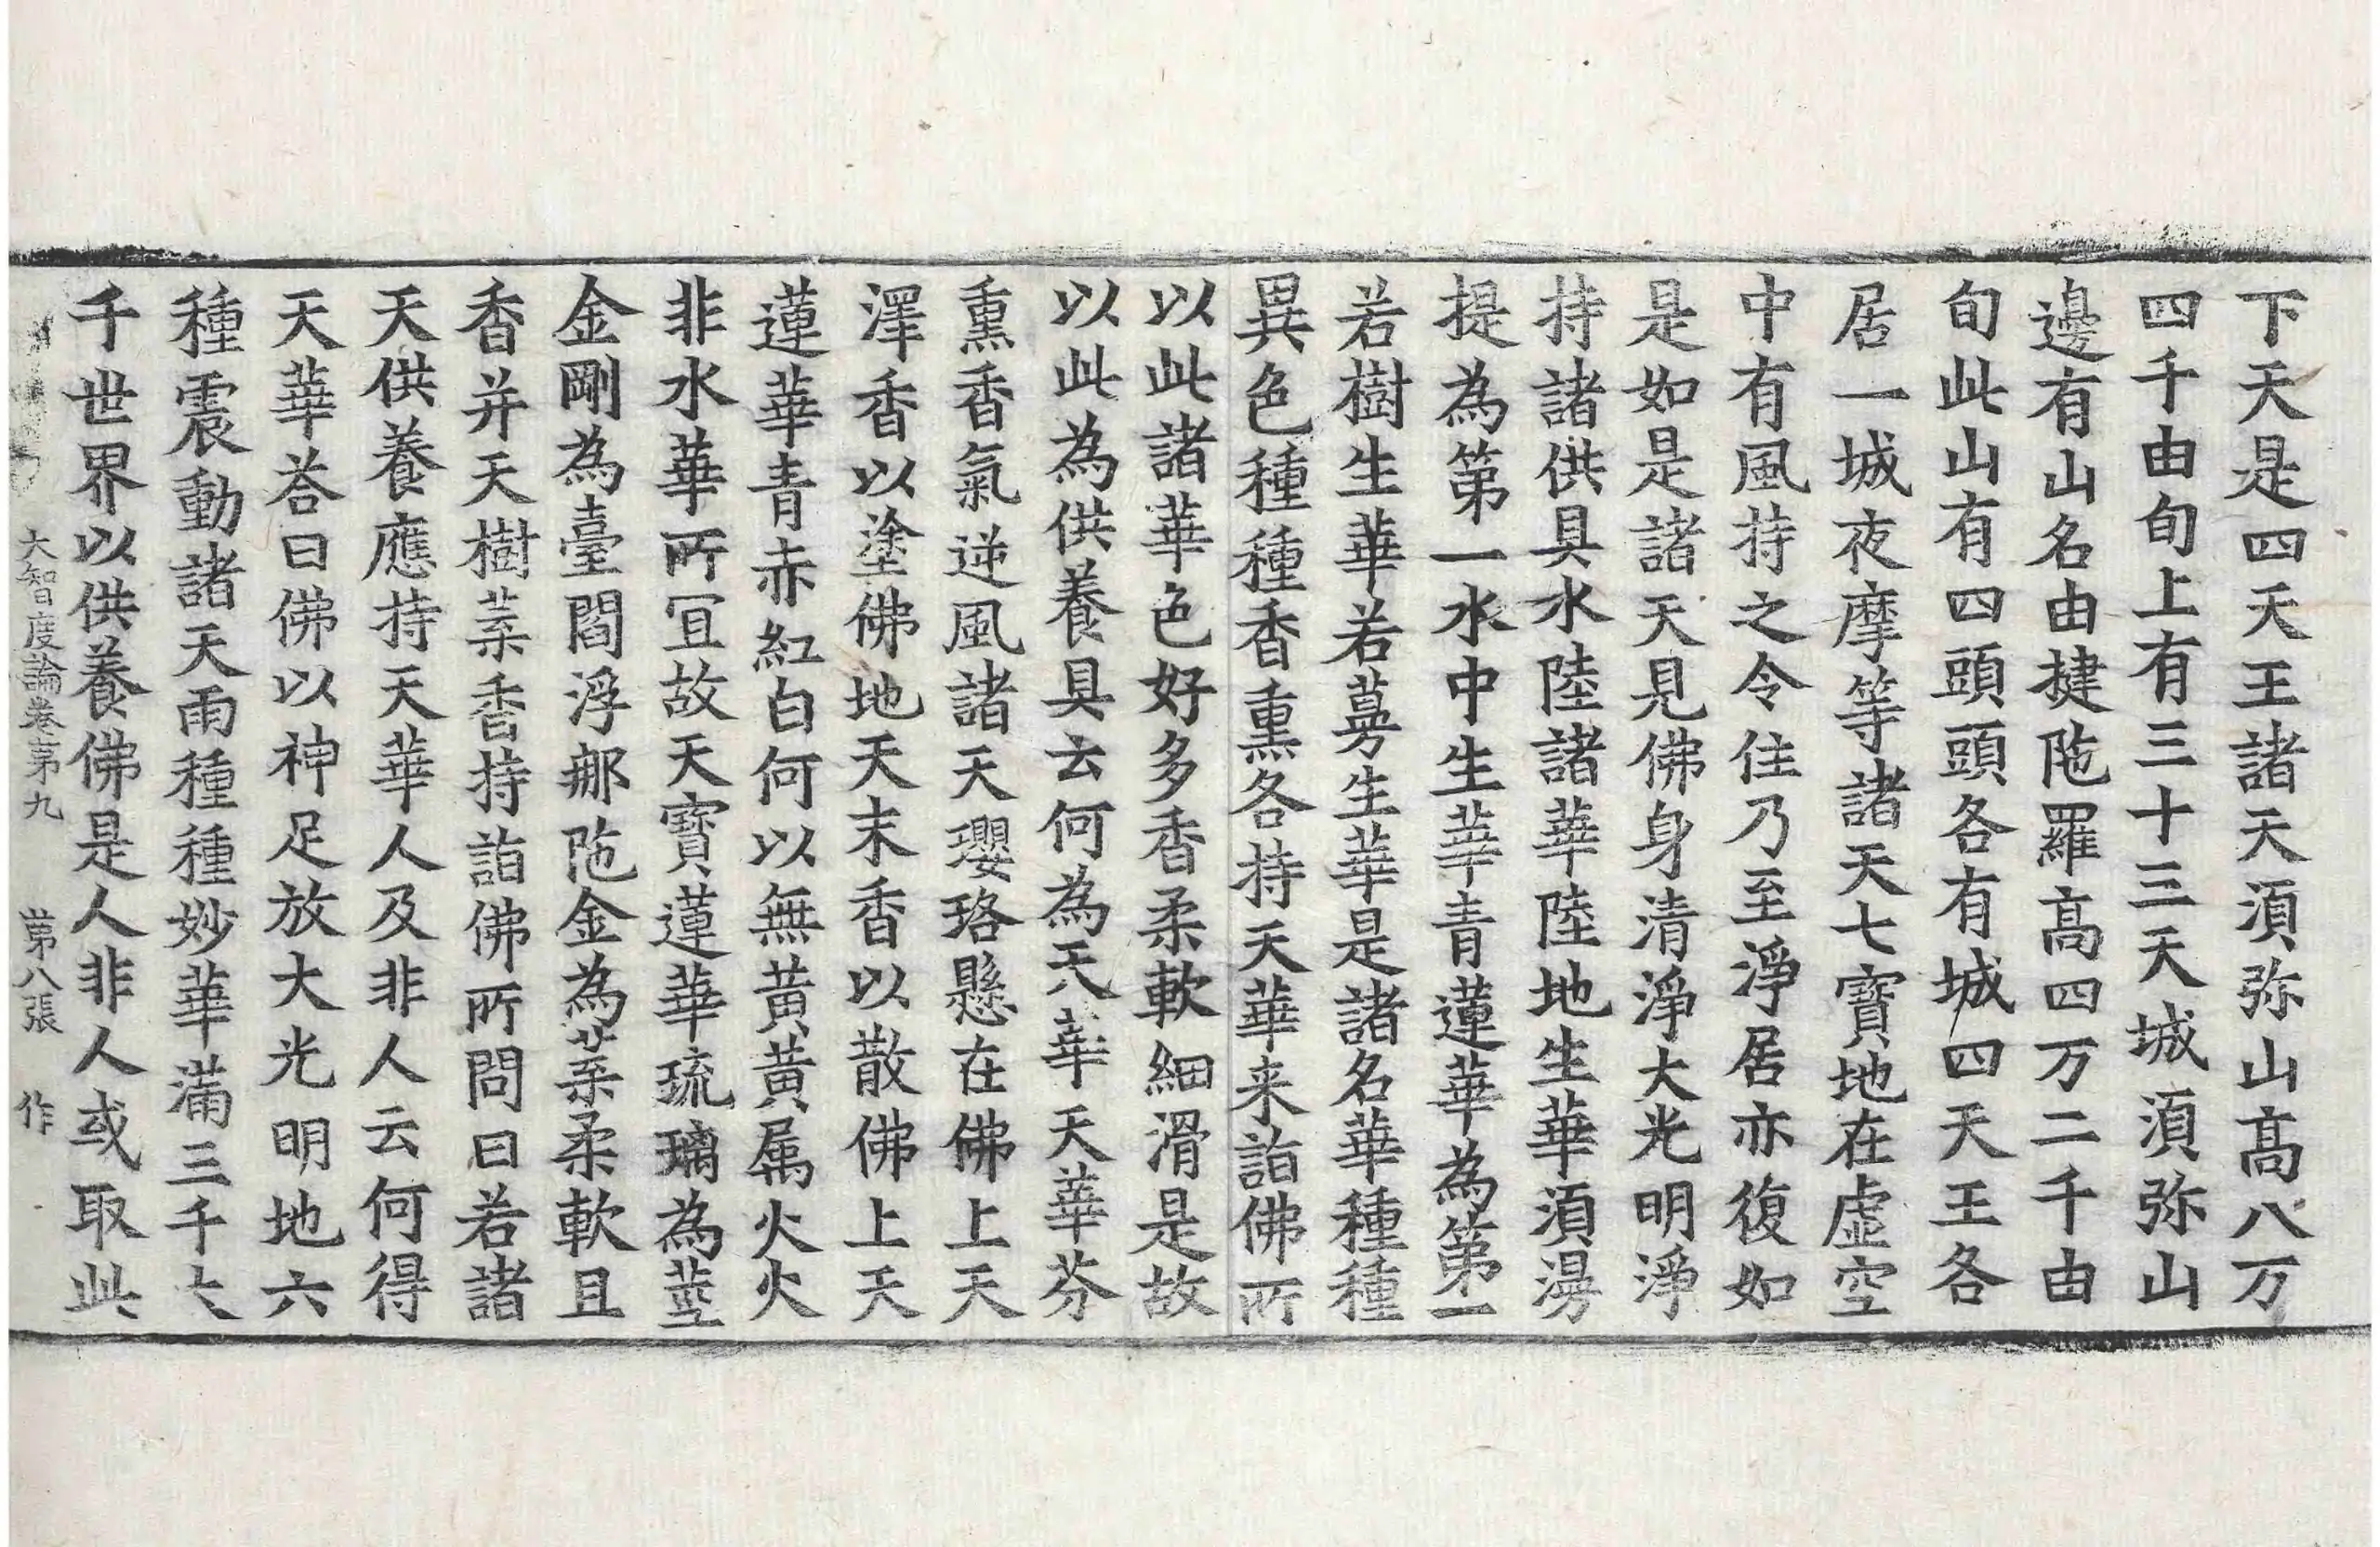 下天是四天王諸天湏弥山髙八万
四千由旬上有三十三天城湏弥山
邊有山名由揵陁羅髙四万二千由
旬此山有四頭頭各有城四天王各
居一城夜摩等諸天七寳地在虚空
中有風持之令住乃至淨居亦復如
是如是諸天見佛身清淨大光明淨
持諸供具水陸諸華陸地生華湏㬅
提為第一水中生華青蓮華為第一
若樹生華若蔓生華是諸名華種種
異色種種香熏各持天華来詣佛所
以此諸華色好多香柔軟細滑是故
以此為供養具云何為天華天華芬
熏香氣逆風諸天瓔珞懸在佛上天
澤香以塗佛地天末香以散佛上天
蓮華青赤紅白何以無黃黃属火火
非水華所冝故天寳蓮華琉璃為莖
金剛為臺閻浮那陁金為葉柔軟且
香并天樹葉香持詣佛所問曰若諸
天供養應持天華人及非人云何得
天華荅曰佛以神足放大光明地六
種震動諸天雨種種妙華滿三千大
千世界以供養佛是人非人或取此
大智度論卷苐九 苐八張 作